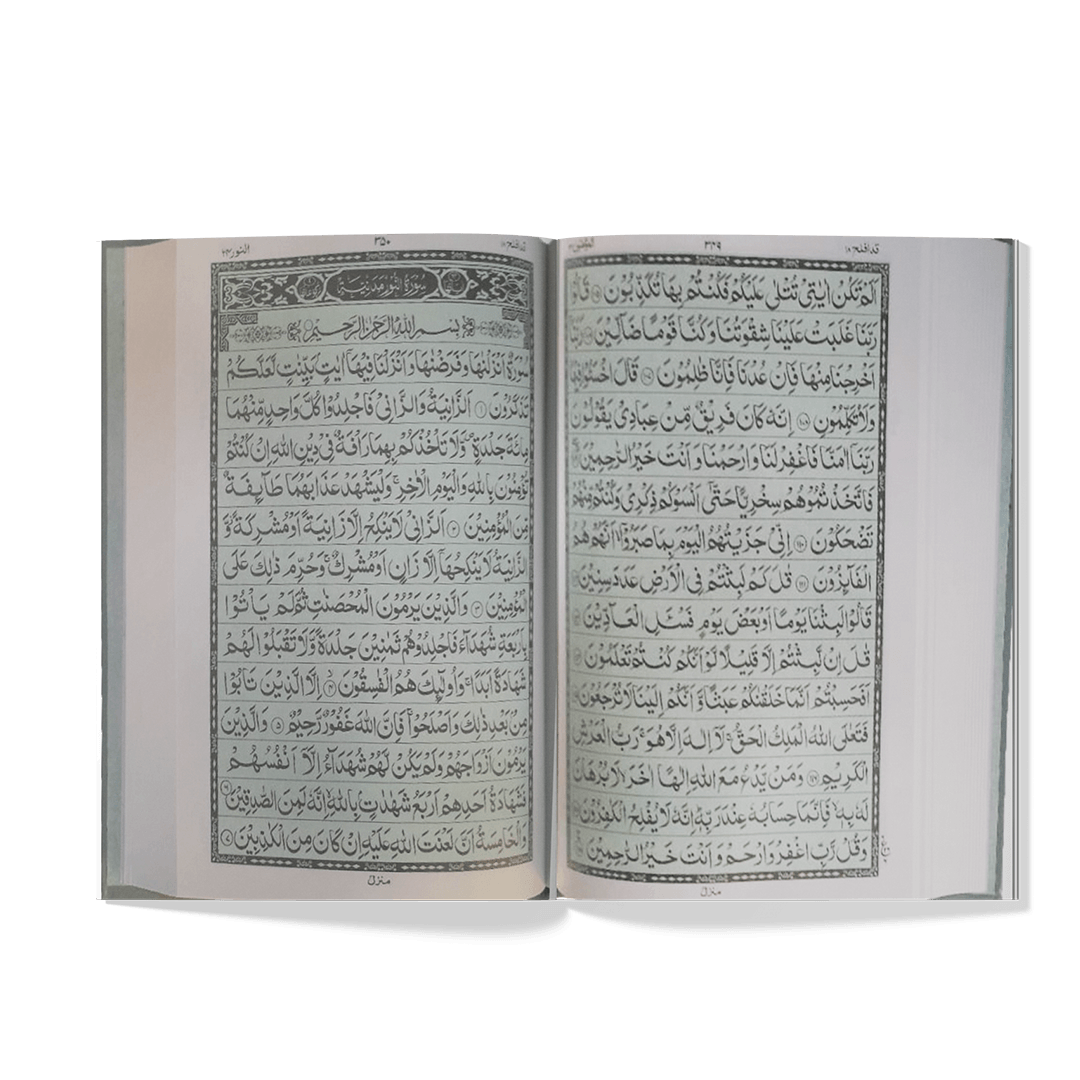 قد افلح ١٨
٣٤٩
المؤمنون ٢٣
اَلَمْ تَكُنْ اٰيٰتِيْ تُتْلٰى عَلَيْكُمْ فَكُنْتُمْ بِهَا تُكَذِّبُوْنَ ۝١٠٥ قَالُوْا
رَبَّنَا غَلَبَتْ عَلَيْنَا شِقْوَتُنَا وَكُنَّا قَوْمًا ضَآلِّيْنَ ۝١٠٦ رَبَّنَآ
اَخْرِجْنَا مِنْهَا فَاِنْ عُدْنَا فَاِنَّا ظٰلِمُوْنَ ۝١٠٧ قَالَ اخْسَئُوْا فِيْهَا
وَلَا تُكَلِّمُوْنِ ۝١٠٨ اِنَّهٗ كَانَ فَرِيْقٌ مِّنْ عِبَادِيْ يَقُوْلُوْنَ
رَبَّنَآ اٰمَنَّا فَاغْفِرْ لَنَا وَارْحَمْنَا وَاَنْتَ خَيْرُ الرّٰحِمِيْنَ ۝١٠٩
فَاتَّخَذْتُمُوْهُمْ سِخْرِيًّا حَتّٰٓى اَنْسَوْكُمْ ذِكْرِيْ وَكُنْتُمْ مِّنْهُمْ
تَضْحَكُوْنَ ۝١١٠ اِنِّيْ جَزَيْتُهُمُ الْيَوْمَ بِمَا صَبَرُوْٓا ۙ اَنَّهُمْ هُمُ
الْفَآئِزُوْنَ ۝١١١ قٰلَ كَمْ لَبِثْتُمْ فِي الْاَرْضِ عَدَدَ سِنِيْنَ ۝١١٢
قَالُوْا لَبِثْنَا يَوْمًا اَوْ بَعْضَ يَوْمٍ فَسْئَلِ الْعَآدِّيْنَ ۝١١٣
قٰلَ اِنْ لَّبِثْتُمْ اِلَّا قَلِيْلًا لَّوْ اَنَّكُمْ كُنْتُمْ تَعْلَمُوْنَ ۝١١٤
اَفَحَسِبْتُمْ اَنَّمَا خَلَقْنٰكُمْ عَبَثًا وَّاَنَّكُمْ اِلَيْنَا لَا تُرْجَعُوْنَ ۝١١٥
فَتَعٰلَى اللّٰهُ الْمَلِكُ الْحَقُّ ۚ لَآ اِلٰهَ اِلَّا هُوَ ۚ رَبُّ الْعَرْشِ
الْكَرِيْمِ ۝١١٦ وَمَنْ يَّدْعُ مَعَ اللّٰهِ اِلٰهًا اٰخَرَ ۙ لَا بُرْهَانَ
لَهٗ بِهٖ ۙ فَاِنَّمَا حِسَابُهٗ عِنْدَ رَبِّهٖ ؕ اِنَّهٗ لَا يُفْلِحُ الْكٰفِرُوْنَ ۝١١٧
وَقُلْ رَّبِّ اغْفِرْ وَارْحَمْ وَاَنْتَ خَيْرُ الرّٰحِمِيْنَ ۝١١٨
منزل
قد افلح ١٨
٣٥٠
النور ٢٤
سُوْرَةُ النُّوْرِ مَدَنِيَّةٌ
بِسْمِ اللّٰهِ الرَّحْمٰنِ الرَّحِيْمِ
سُوْرَةٌ اَنْزَلْنٰهَا وَفَرَضْنٰهَا وَاَنْزَلْنَا فِيْهَآ اٰيٰتٍۭ بَيِّنٰتٍ لَّعَلَّكُمْ
تَذَكَّرُوْنَ ۝١ اَلزَّانِيَةُ وَالزَّانِيْ فَاجْلِدُوْا كُلَّ وَاحِدٍ مِّنْهُمَا
مِائَةَ جَلْدَةٍ ۪ وَّلَا تَاْخُذْكُمْ بِهِمَا رَاْفَةٌ فِيْ دِيْنِ اللّٰهِ اِنْ كُنْتُمْ
تُؤْمِنُوْنَ بِاللّٰهِ وَالْيَوْمِ الْاٰخِرِ ۚ وَلْيَشْهَدْ عَذَابَهُمَا طَآئِفَةٌ
مِّنَ الْمُؤْمِنِيْنَ ۝٢ اَلزَّانِيْ لَا يَنْكِحُ اِلَّا زَانِيَةً اَوْ مُشْرِكَةً ؗ وَّ
الزَّانِيَةُ لَا يَنْكِحُهَآ اِلَّا زَانٍ اَوْ مُشْرِكٌ ۚ وَحُرِّمَ ذٰلِكَ عَلَى
الْمُؤْمِنِيْنَ ۝٣ وَالَّذِيْنَ يَرْمُوْنَ الْمُحْصَنٰتِ ثُمَّ لَمْ يَاْتُوْا
بِاَرْبَعَةِ شُهَدَآءَ فَاجْلِدُوْهُمْ ثَمٰنِيْنَ جَلْدَةً وَّلَا تَقْبَلُوْا لَهُمْ
شَهَادَةً اَبَدًا ۚ وَاُولٰٓئِكَ هُمُ الْفٰسِقُوْنَ ۝٤ اِلَّا الَّذِيْنَ تَابُوْا
مِنْۢ بَعْدِ ذٰلِكَ وَاَصْلَحُوْا ۚ فَاِنَّ اللّٰهَ غَفُوْرٌ رَّحِيْمٌ ۝٥ وَالَّذِيْنَ
يَرْمُوْنَ اَزْوَاجَهُمْ وَلَمْ يَكُنْ لَّهُمْ شُهَدَآءُ اِلَّآ اَنْفُسُهُمْ
فَشَهَادَةُ اَحَدِهِمْ اَرْبَعُ شَهٰدٰتٍۭ بِاللّٰهِ ۙ اِنَّهٗ لَمِنَ الصّٰدِقِيْنَ ۝٦
وَالْخَامِسَةُ اَنَّ لَعْنَتَ اللّٰهِ عَلَيْهِ اِنْ كَانَ مِنَ الْكٰذِبِيْنَ ۝٧
منزل